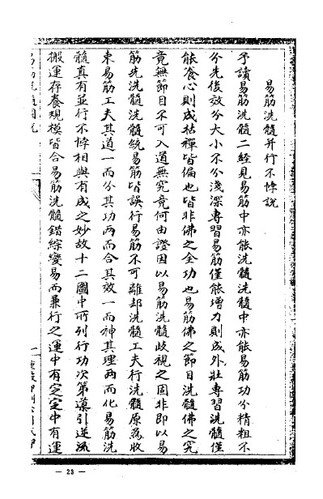 易筋洗髓并行不悖說
予讀易筋洗髓二經見易筋中亦能洗髓洗髓中亦能易筋功分精粗不
分先後效分大小不分淺深專習易筋僅能增力則成外壯專習洗髓僅
能養心則成枯禪皆偏也皆非佛之全功也易筋佛之節目洗髓佛之究
竟無節目不可入道無究竟何由證因以易筋洗髓歧視之固非即以易
筋先洗髓洗髓統易筋皆誤行易筋不可離却洗髓工夫行洗髓原為收
束易筋工夫其道一而分其功兩而合其效一而神其理兩而化易筋洗
髓真有並行不悖相與有成之妙故十二圖中所列行功次第導引逆流
搬運存養規模皆合易筋洗髓錯綜變易而兼行之運中有定定中有運
— 23 —